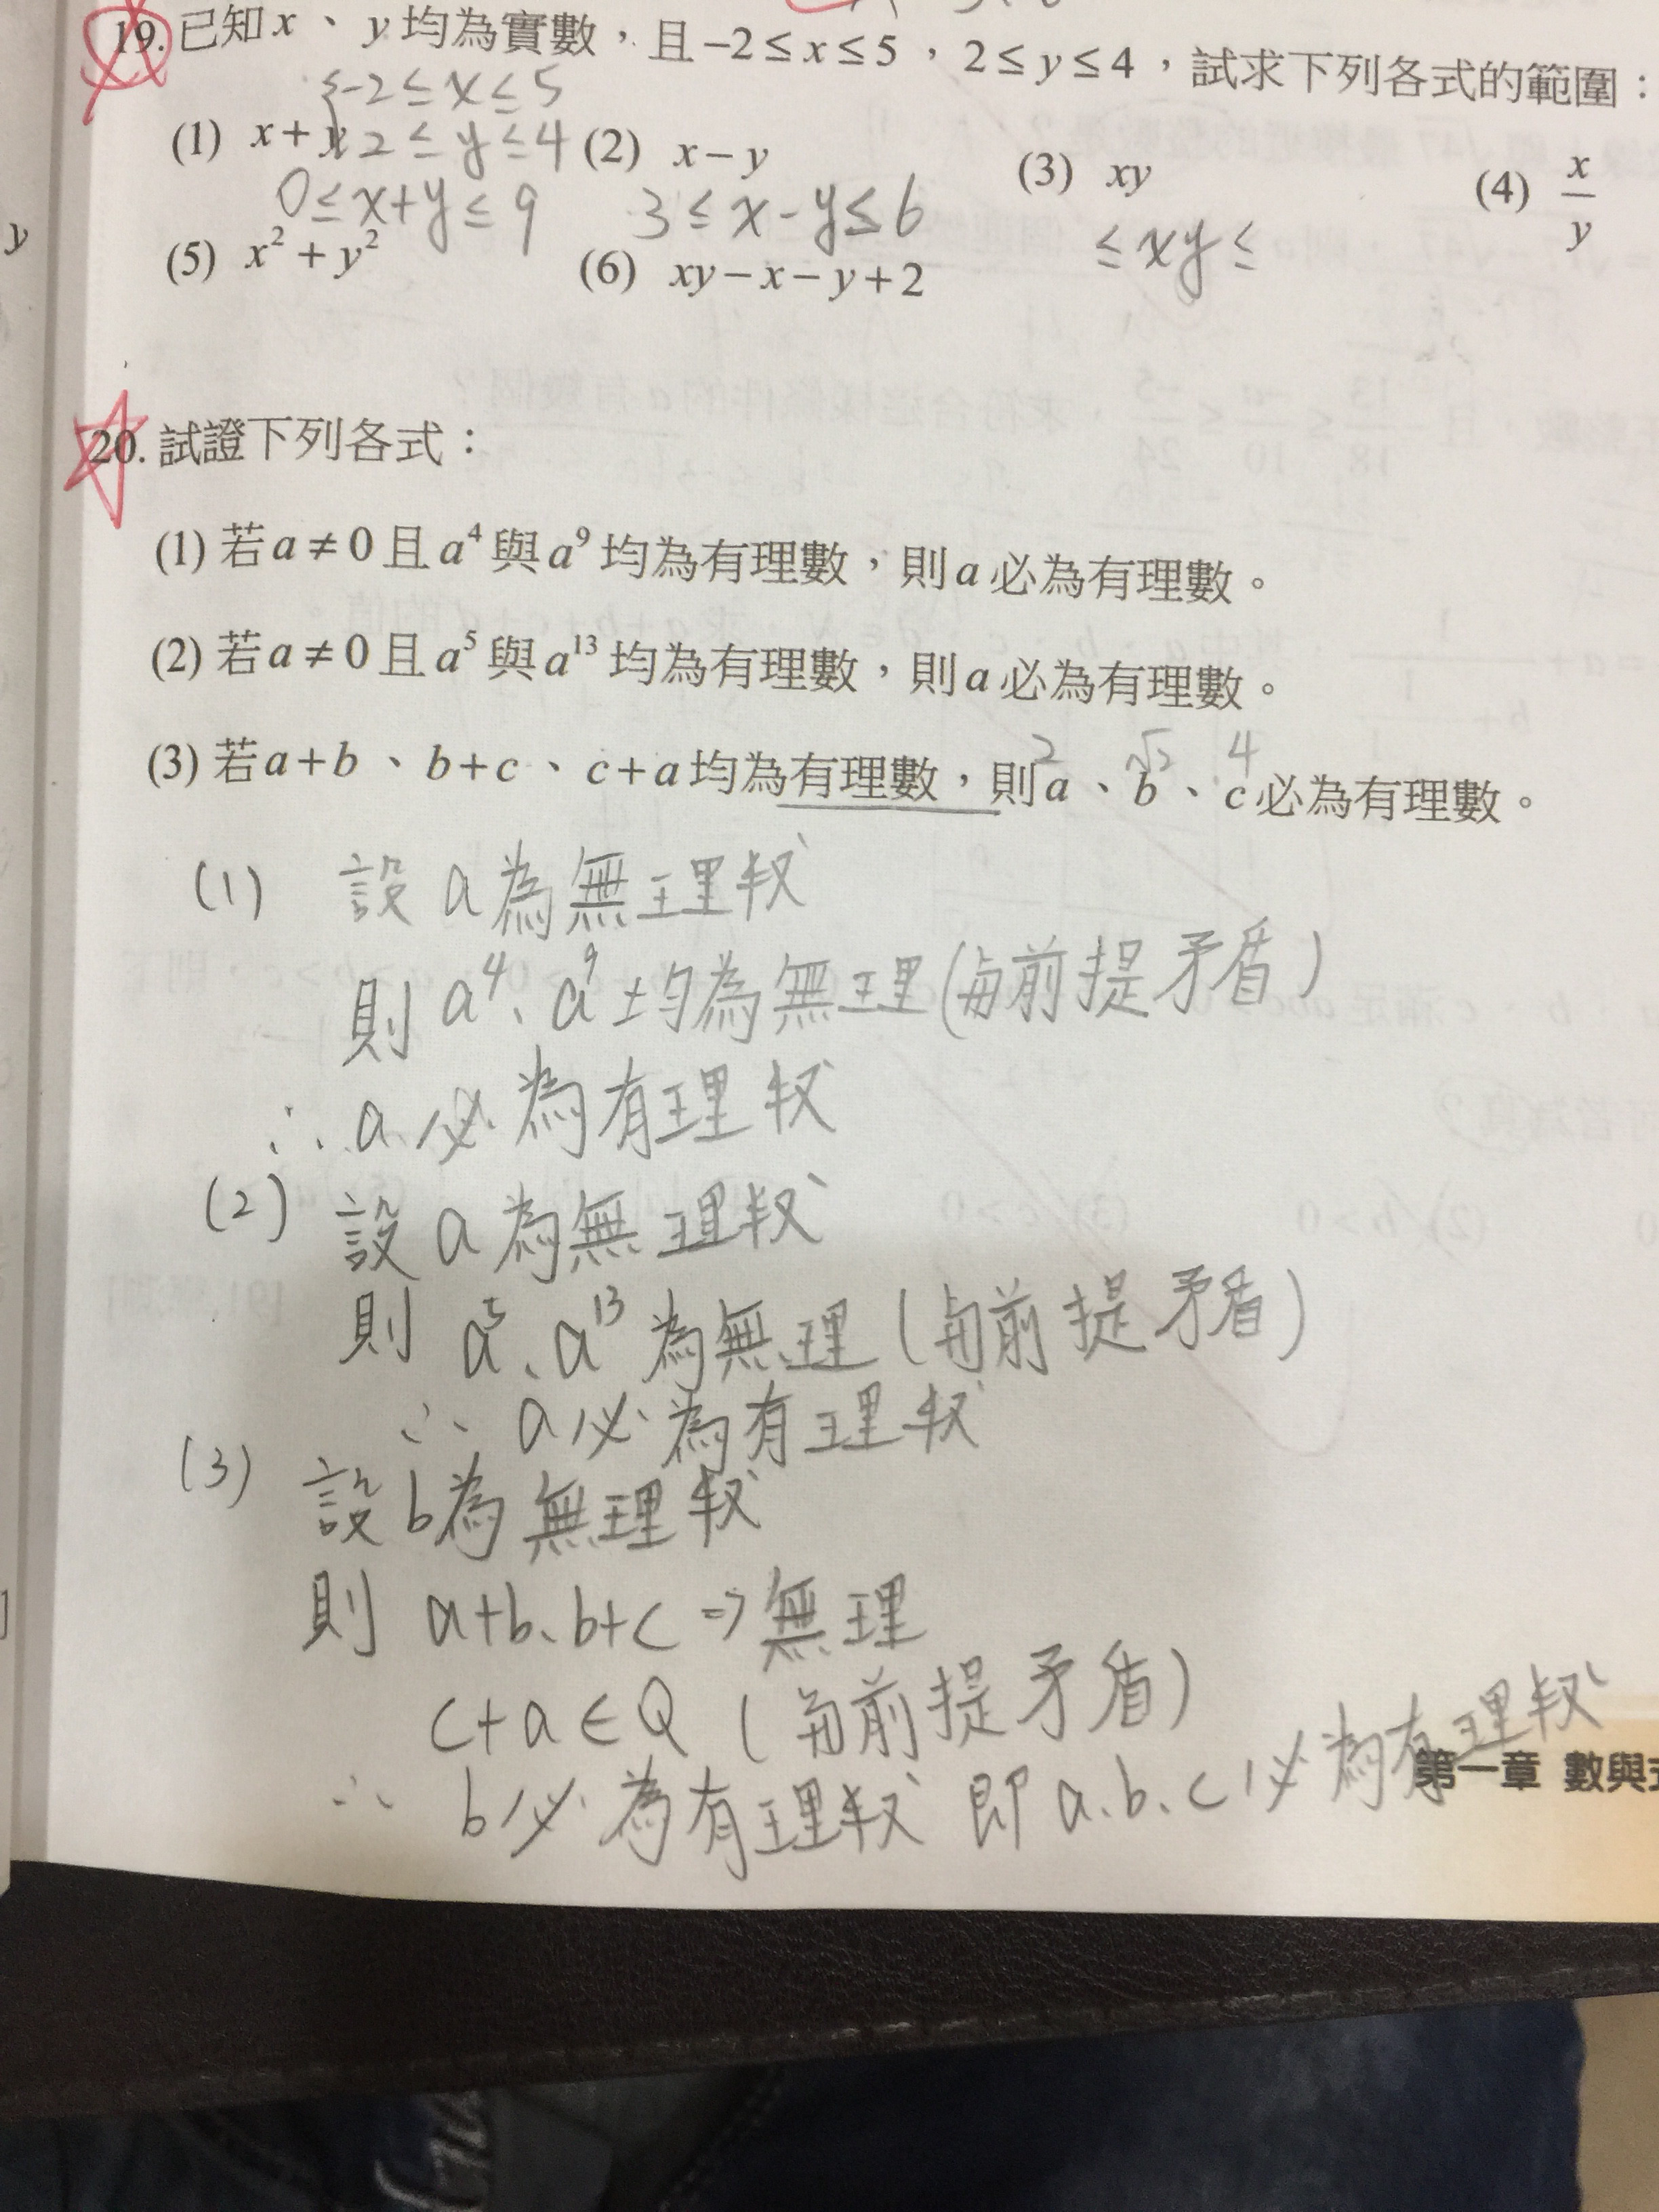 19. 已知x、y均為實數，且−2≤x≤5，2≤y≤4，試求下列各式的範圍：
{-2≤x≤5
(1) x+y 2≤y≤4 (2) x−y (3) xy (4) x/y
0≤x+y≤9 3≤x-y≤6 ≤xy≤
(5) x²+y² (6) xy−x−y+2
20. 試證下列各式：
(1) 若a≠0且a⁴與a⁹均為有理數，則a必為有理數。
(2) 若a≠0且a⁵與a¹³均為有理數，則a必為有理數。
2 √2 4
(3) 若a+b、b+c、c+a均為有理數，則a、b、c必為有理數。
(1) 設a為無理數
則a⁴、a⁹均為無理(與前提矛盾)
∴a必為有理數
(2) 設a為無理數
則a⁵、a¹³為無理(與前提矛盾)
∴a必為有理數
(3) 設b為無理數
則a+b、b+c⇒無理
c+a∈Q (與前提矛盾)
∴b必為有理數 即a、b、c必為有理數
第一章 數與
y